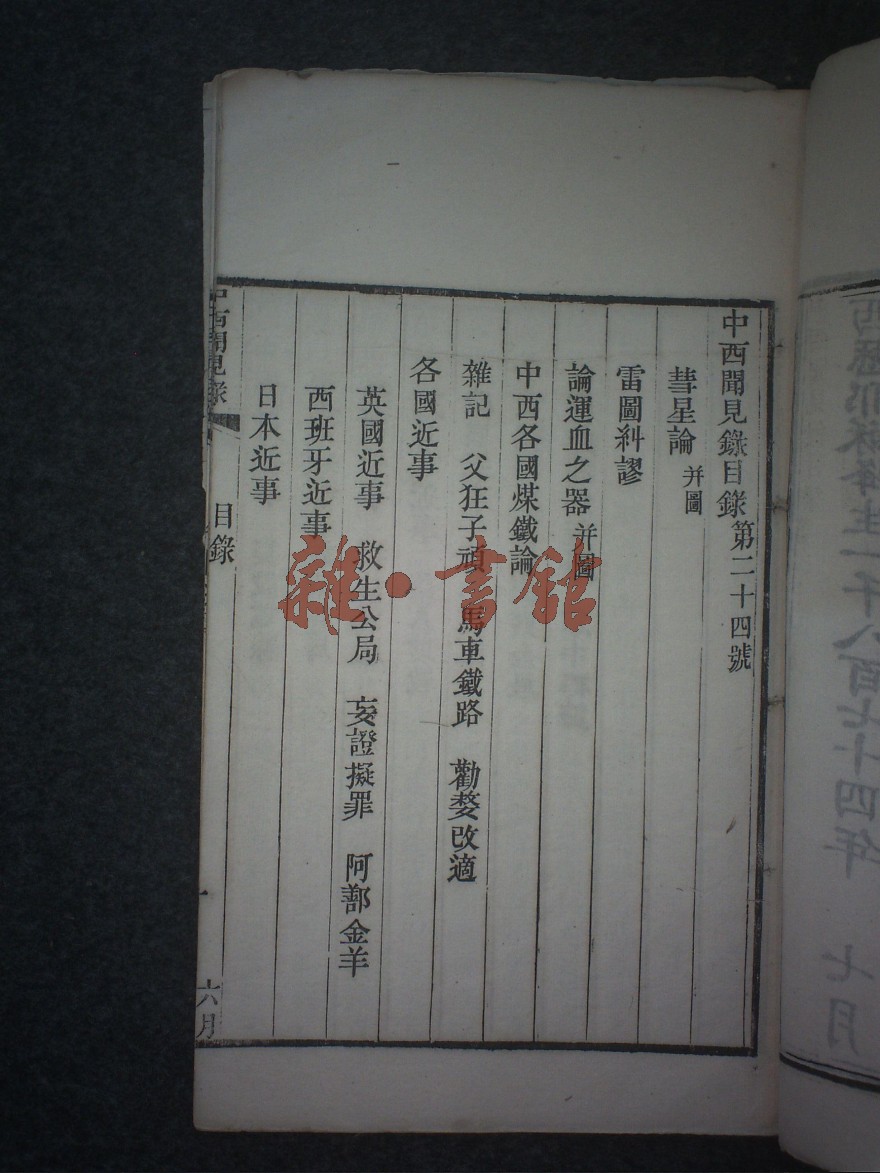 中西聞見錄目錄第二十四號
彗星論 并圖
雷圖糾謬
論運血之器 并圖
中西各國煤鐵論
雜記 父狂子頑 馬車鐵路 勸嫠改適
各國近事
英國近事 救生公局 妄證擬罪 阿鄯金羊
西班牙近事
日本近事
中西聞見錄 目錄 一 六月
西歷耶穌降生一千八百七十四年 七月
雜·書館